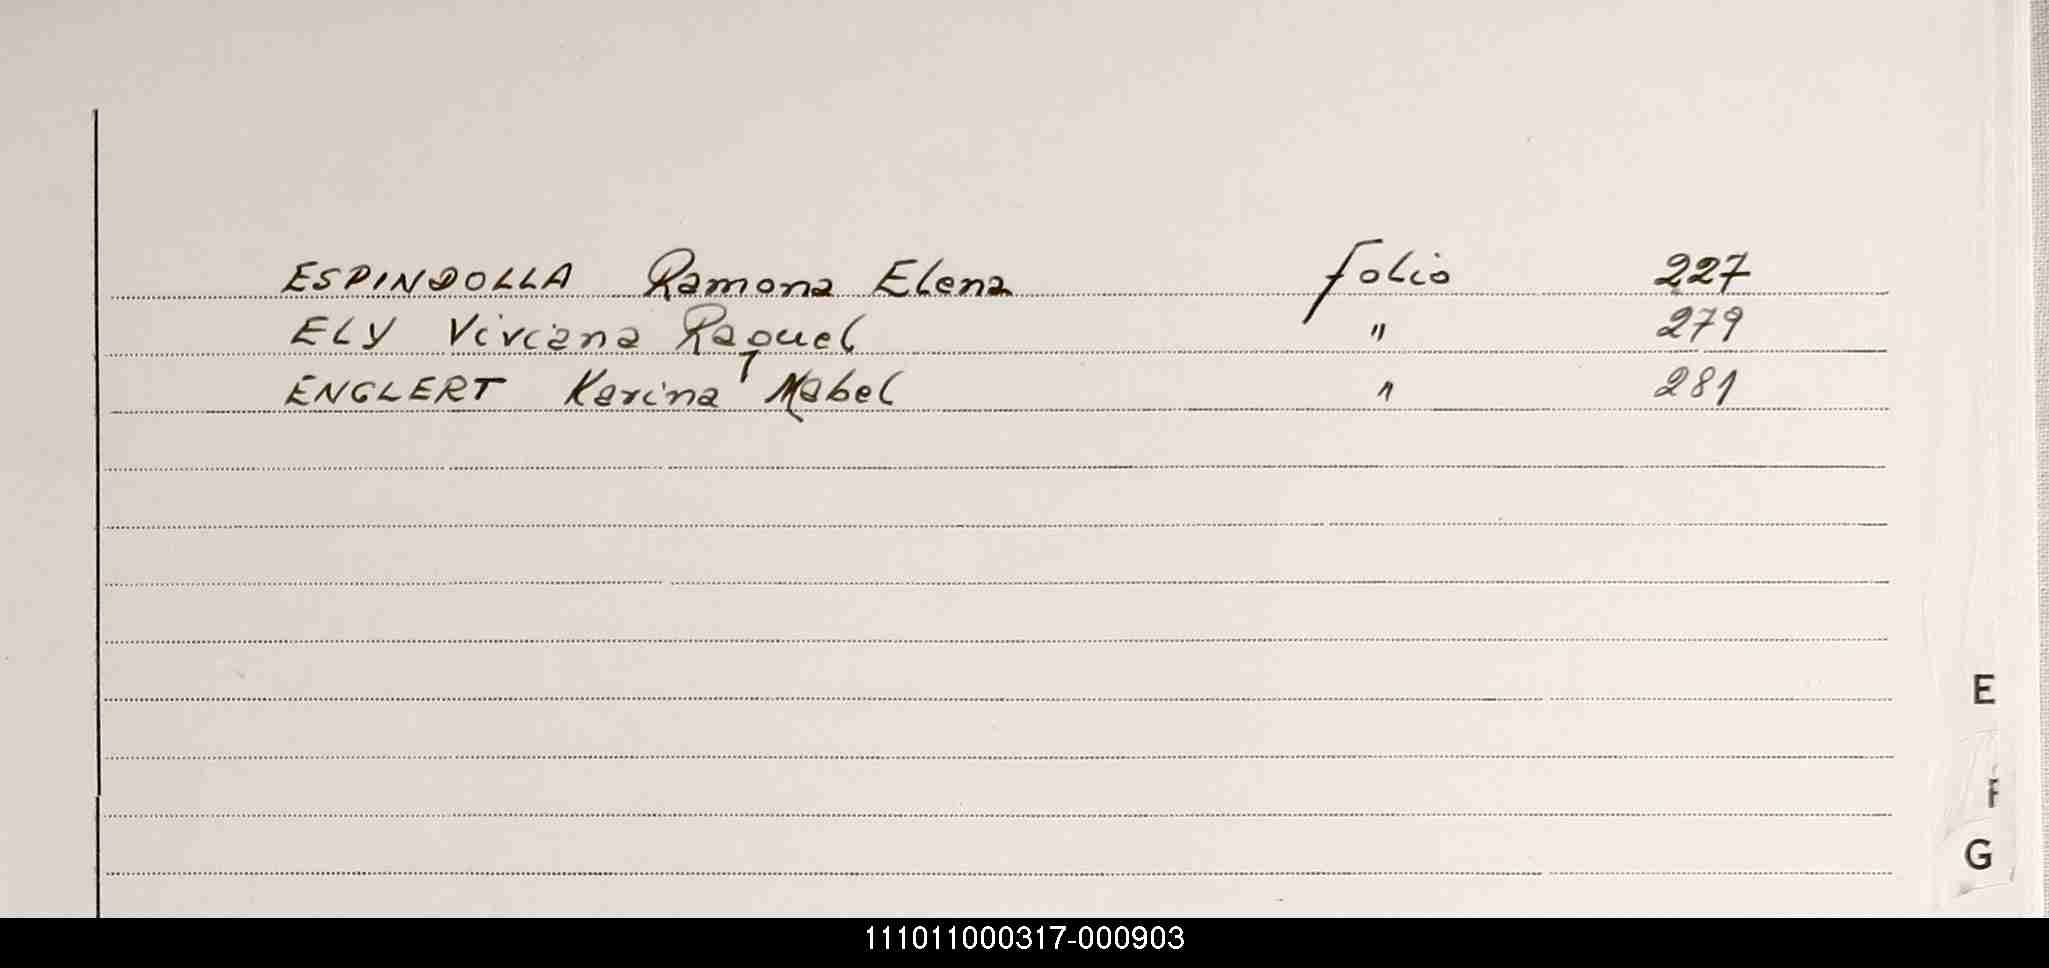 ESPINDOLLA Ramona Elena folio 227
ELY Viviana Raquel " 279
ENGLERT Karina Mabel " 281
E
F
G
111011000317-000903